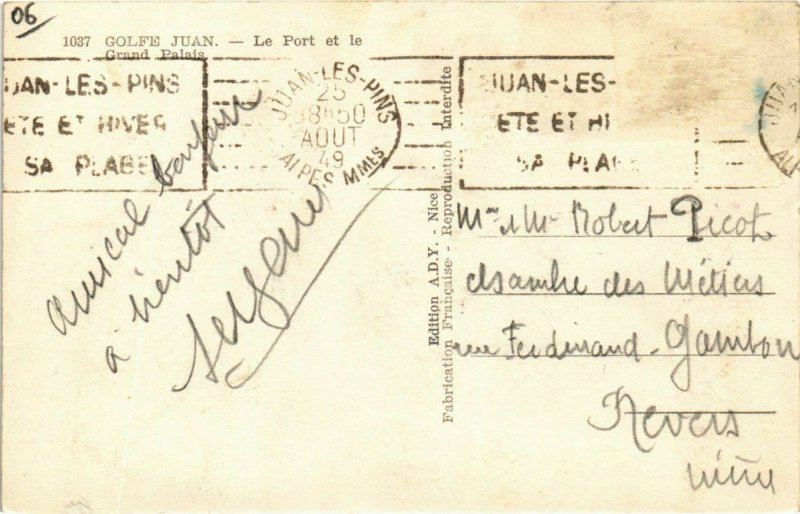 06
1037 GOLFE JUAN. — Le Port et le
Grand Palais
JUAN-LES-PINS
ETE ET HIVER
SA PLAGE
JUAN-LES-PINS
25
18H50
AOUT
49
ALPES MMES
JUAN-LES-
ETE ET HI
SA PLAG
amical bonjour
à bientôt
Edition A.D.Y. - Nice
Fabrication Française - Reproduction Interdite
Mme & Mr Robert Picot
Chambre des Métiers
rue Ferdinand-Gambon
Nevers
Nièvre